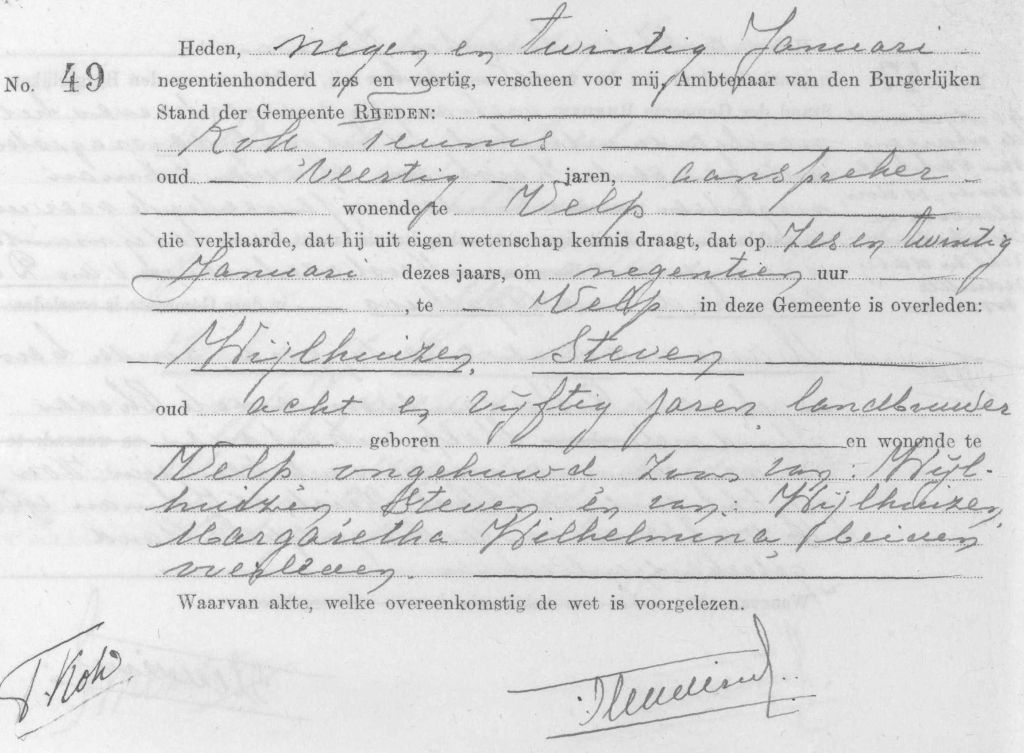 Heden, negen en twintig Januari
No. 49 negentienhonderd zes en veertig, verscheen voor mij, Ambtenaar van den Burgerlijken
Stand der Gemeente RHEDEN:
Kok Teunis
oud veertig jaren, aanspreker
wonende te Velp
die verklaarde, dat hij uit eigen wetenschap kennis draagt, dat op zes en twintig
Januari dezes jaars, om negentien uur
, te Velp in deze Gemeente is overleden:
Wijlhuizen, Steven
oud acht en vijftig jaren landbouwer
geboren en wonende te
Velp ongehuwd, zoon van: Wijl-
huizen Steven en van Wijlhuizen,
Margaretha Wilhelmina, beiden
overleden.
Waarvan akte, welke overeenkomstig de wet is voorgelezen.
T. Kok.